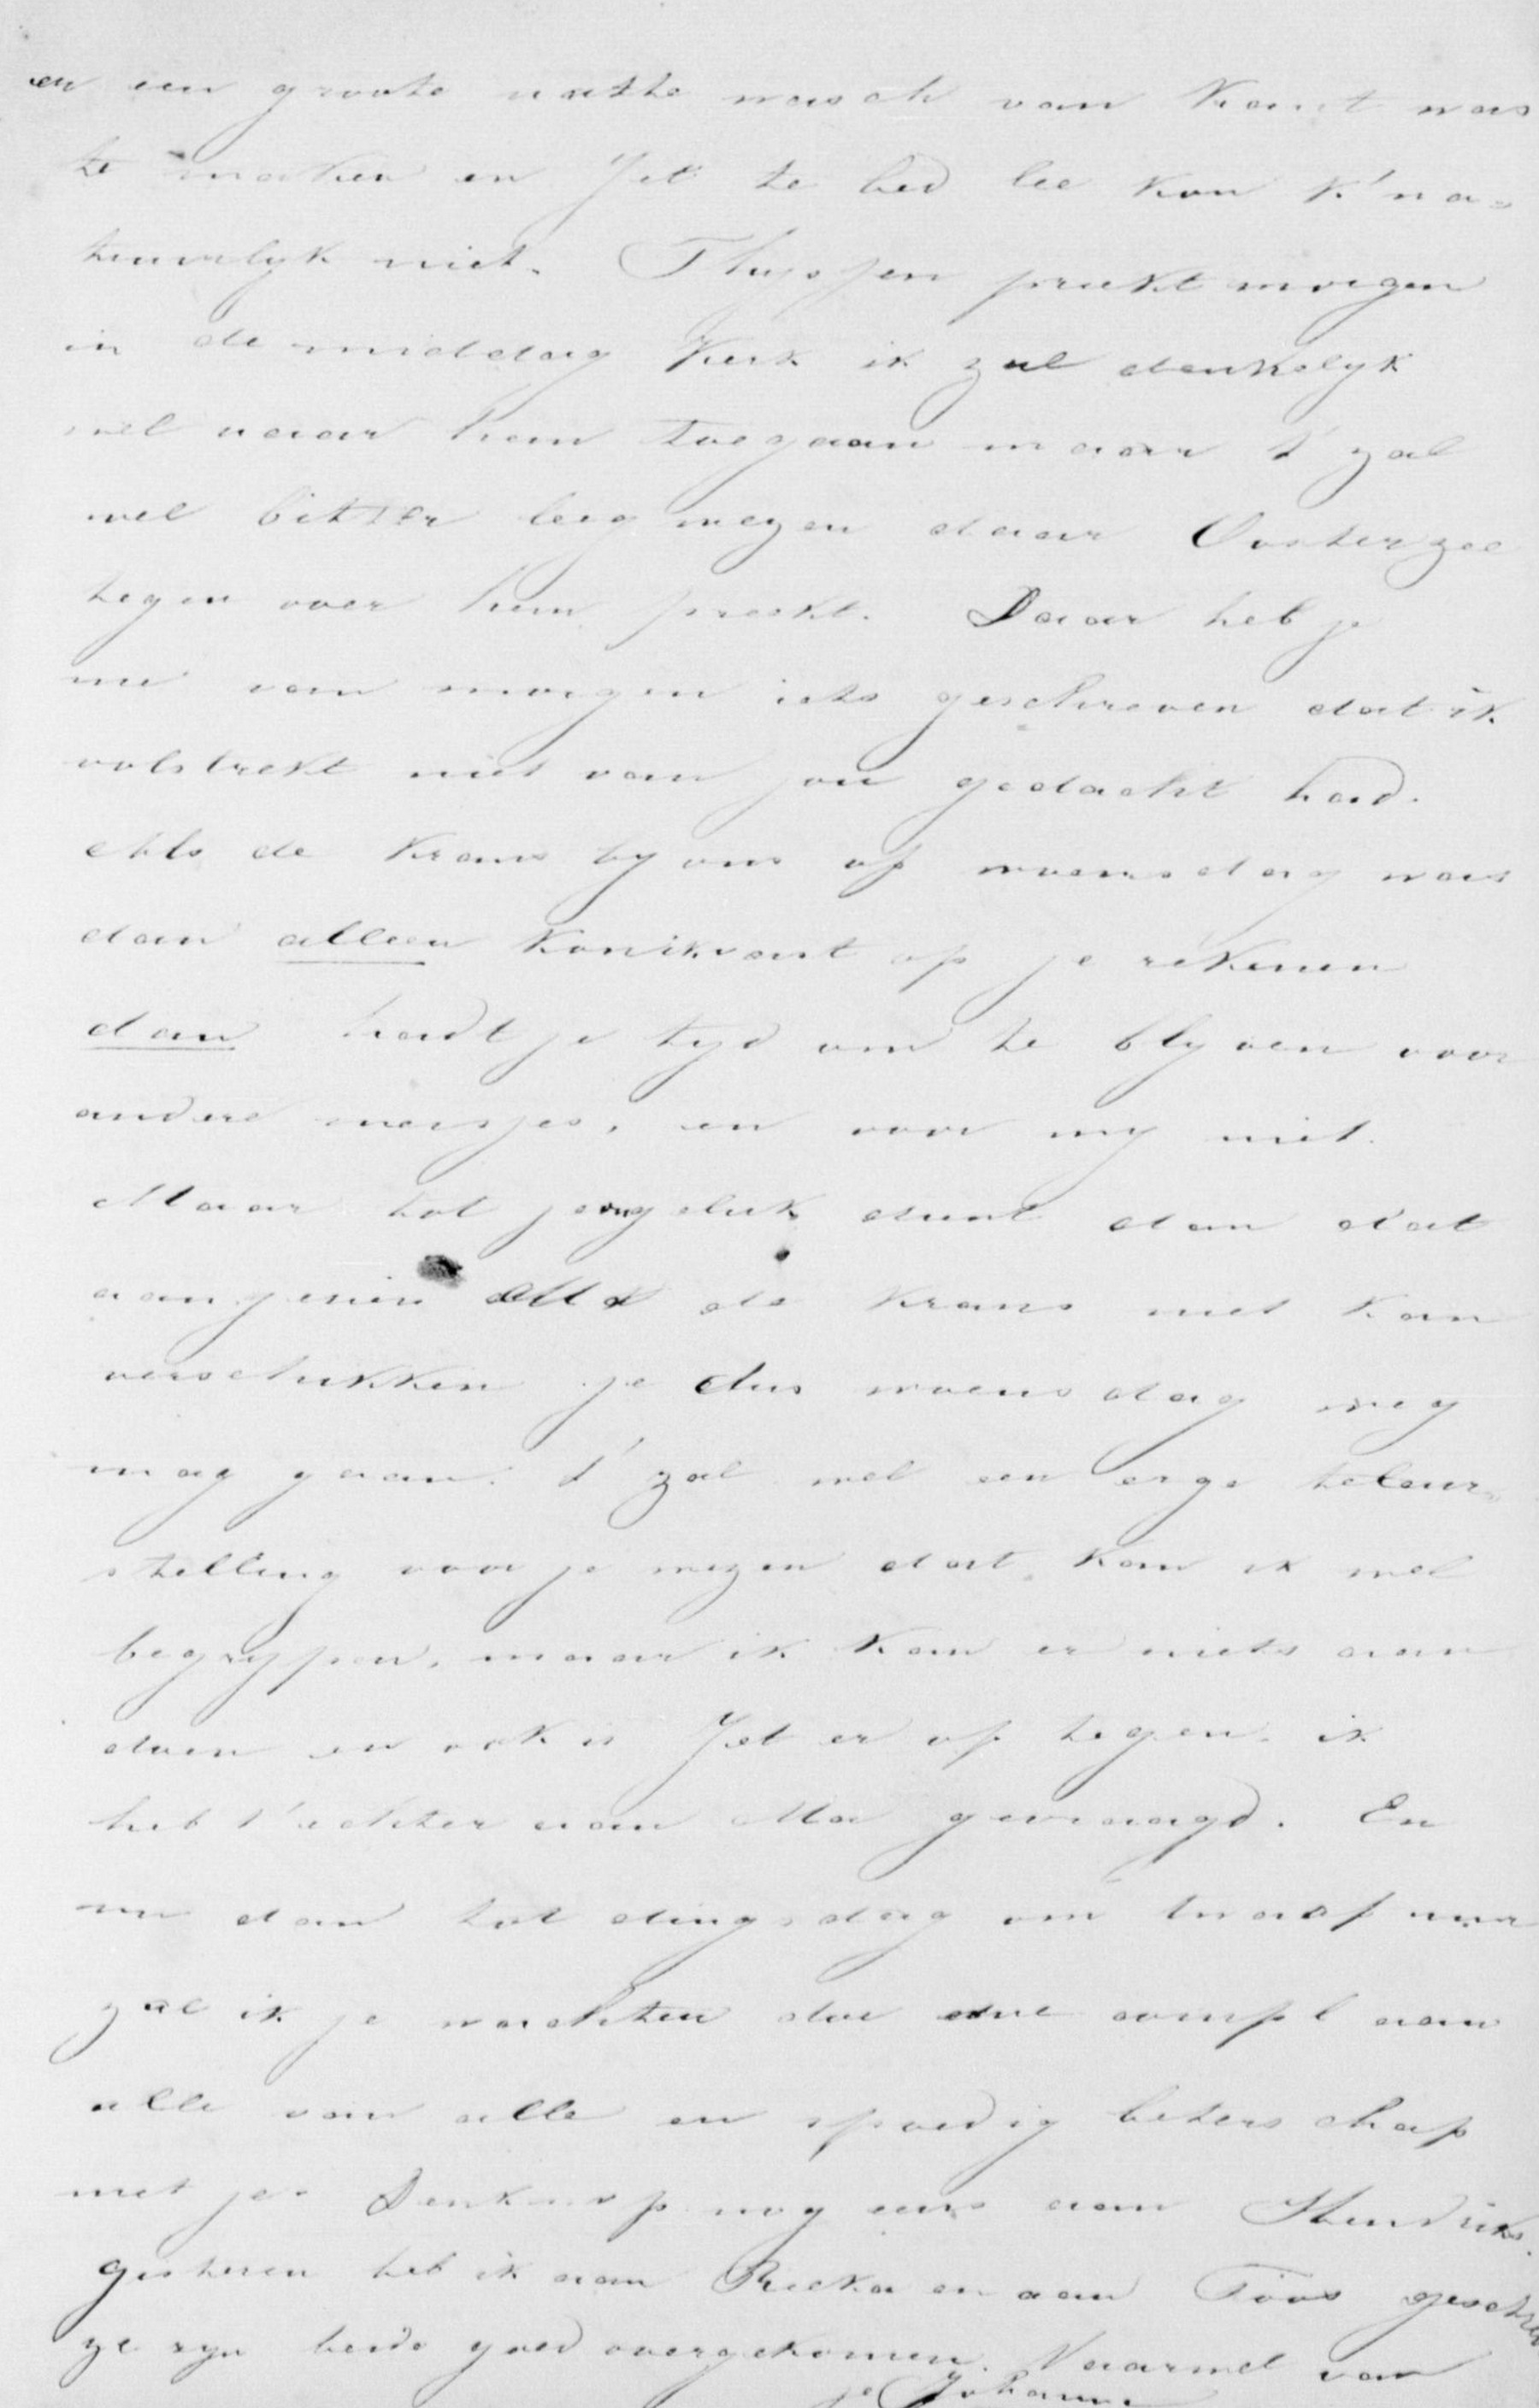 en een groote natte wasch van kant was
te maken en Jet te bed lee kon k'na=
tuurlyk niet. Thyssen preekt morgen
in de middag kerk ik zal denkelyk
wel naar hem toegaan maar t' zal
wel bitter leeg wezen daar Oosterzee
tegen over hem preekt. Daar heb je
me van morgen iets geschreven dat ik
volstrekt niet van jou gedacht had.
Als de krans by ons op woensdag was
dan alleen kon ik vast op je rekenen
dan hadt je tyd om te blyven voor
andere meisjes, en voor my niet.
Maar tot je ongeluk dunt dan dat
aangezien de krans niet kan
verschikken je dus woensdag weg
mag gaan. t' zal wel een erge teleur=
stelling voor je wezen dat kan ik wel
begrypen, maar ik kan er niets aan
doen en ook is Jet er op tegen. ik
heb t'echter aan Ma gevraagd. En
nu dan tot dingsdag om twaalf uur
zal ik je wachten doe compl aan
alle van alle en spoedig beterschap
met je. Denk nog eens aan Hendriks.
gisteren heb ik aan Rieka en aan Toos geschre
ze zyn beide goed overgekomen. Vaarwel van
je Johanna